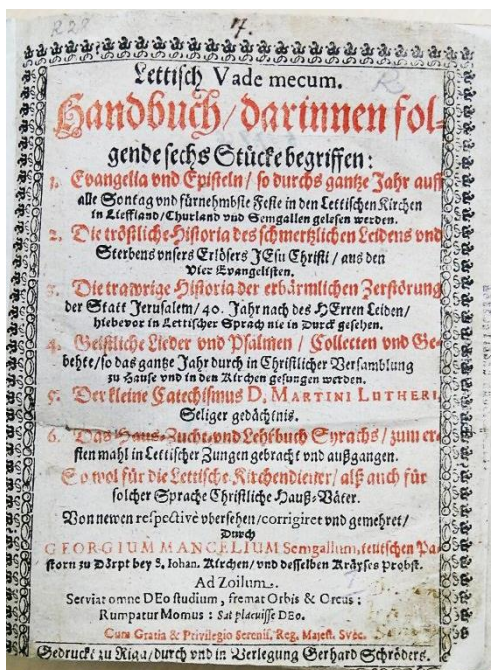 R 28
7.
R
Lettisch Vade mecum.
Handbuch/darinnen fol-
gende sechs Stücke begriffen:
1. Evangelia vnd Episteln/ so durchs gantze Jahr auff
alle Sontag vnd fürnehmbste Feste in den Lettischen Kirchen
in Lieffland/Churland vnd Semgallen gelesen werden.
2. Die tröstliche Historia des schmertzlichen Leidens vnd
Sterbens vnsers Erlösers JEsu Christi/ aus den
Vier Evangelisten.
3. Die trawrige Historia der erbärmlichen Zerstörung
der Statt Jerusalem/ 40. Jahr nach des HErren Leiden/
hiebevor in Lettischer Sprach nie in Durck gesehen.
4. Geistliche Lieder vnd Psalmen/ Collecten vnd Ge-
behte/so das gantze Jahr durch in Christlicher Versamblung
zu Hause vnd in den Kirchen gesungen werden.
5. Der kleine Catechismus D. MARTINI LUTHERI,
Seliger gedächtnis.
6. Das Haus-Zucht-vnd Lehrbuch Syrachs/ zum er-
sten mahl in Lettischer Zungen gebracht vnd außgangen.
So wol für die Lettische Kirchendiener/ alß auch für
solcher Sprache Christliche Hauß-Väter.
Von newen respectivè vbersehen/corrigiret vnd gemehret/
Durch
GEORGIUM MANCELIUM Semgallum, teutschen Pa-
storn zu Dörpt bey S. Johan. Kirchen/ vnd desselben Kräyses Probst.
Ad Zoilum.
Serviat omne DEo studium, fremat Orbis & Orcus:
Rumpatur Momus: Sat placuisse DEo.
Cum Gratia & Privilegio Sereniss. Reg. Majest. Svec.
Gedruckt zu Riga/durch vnd in Verlegung Gerhard Schröders.